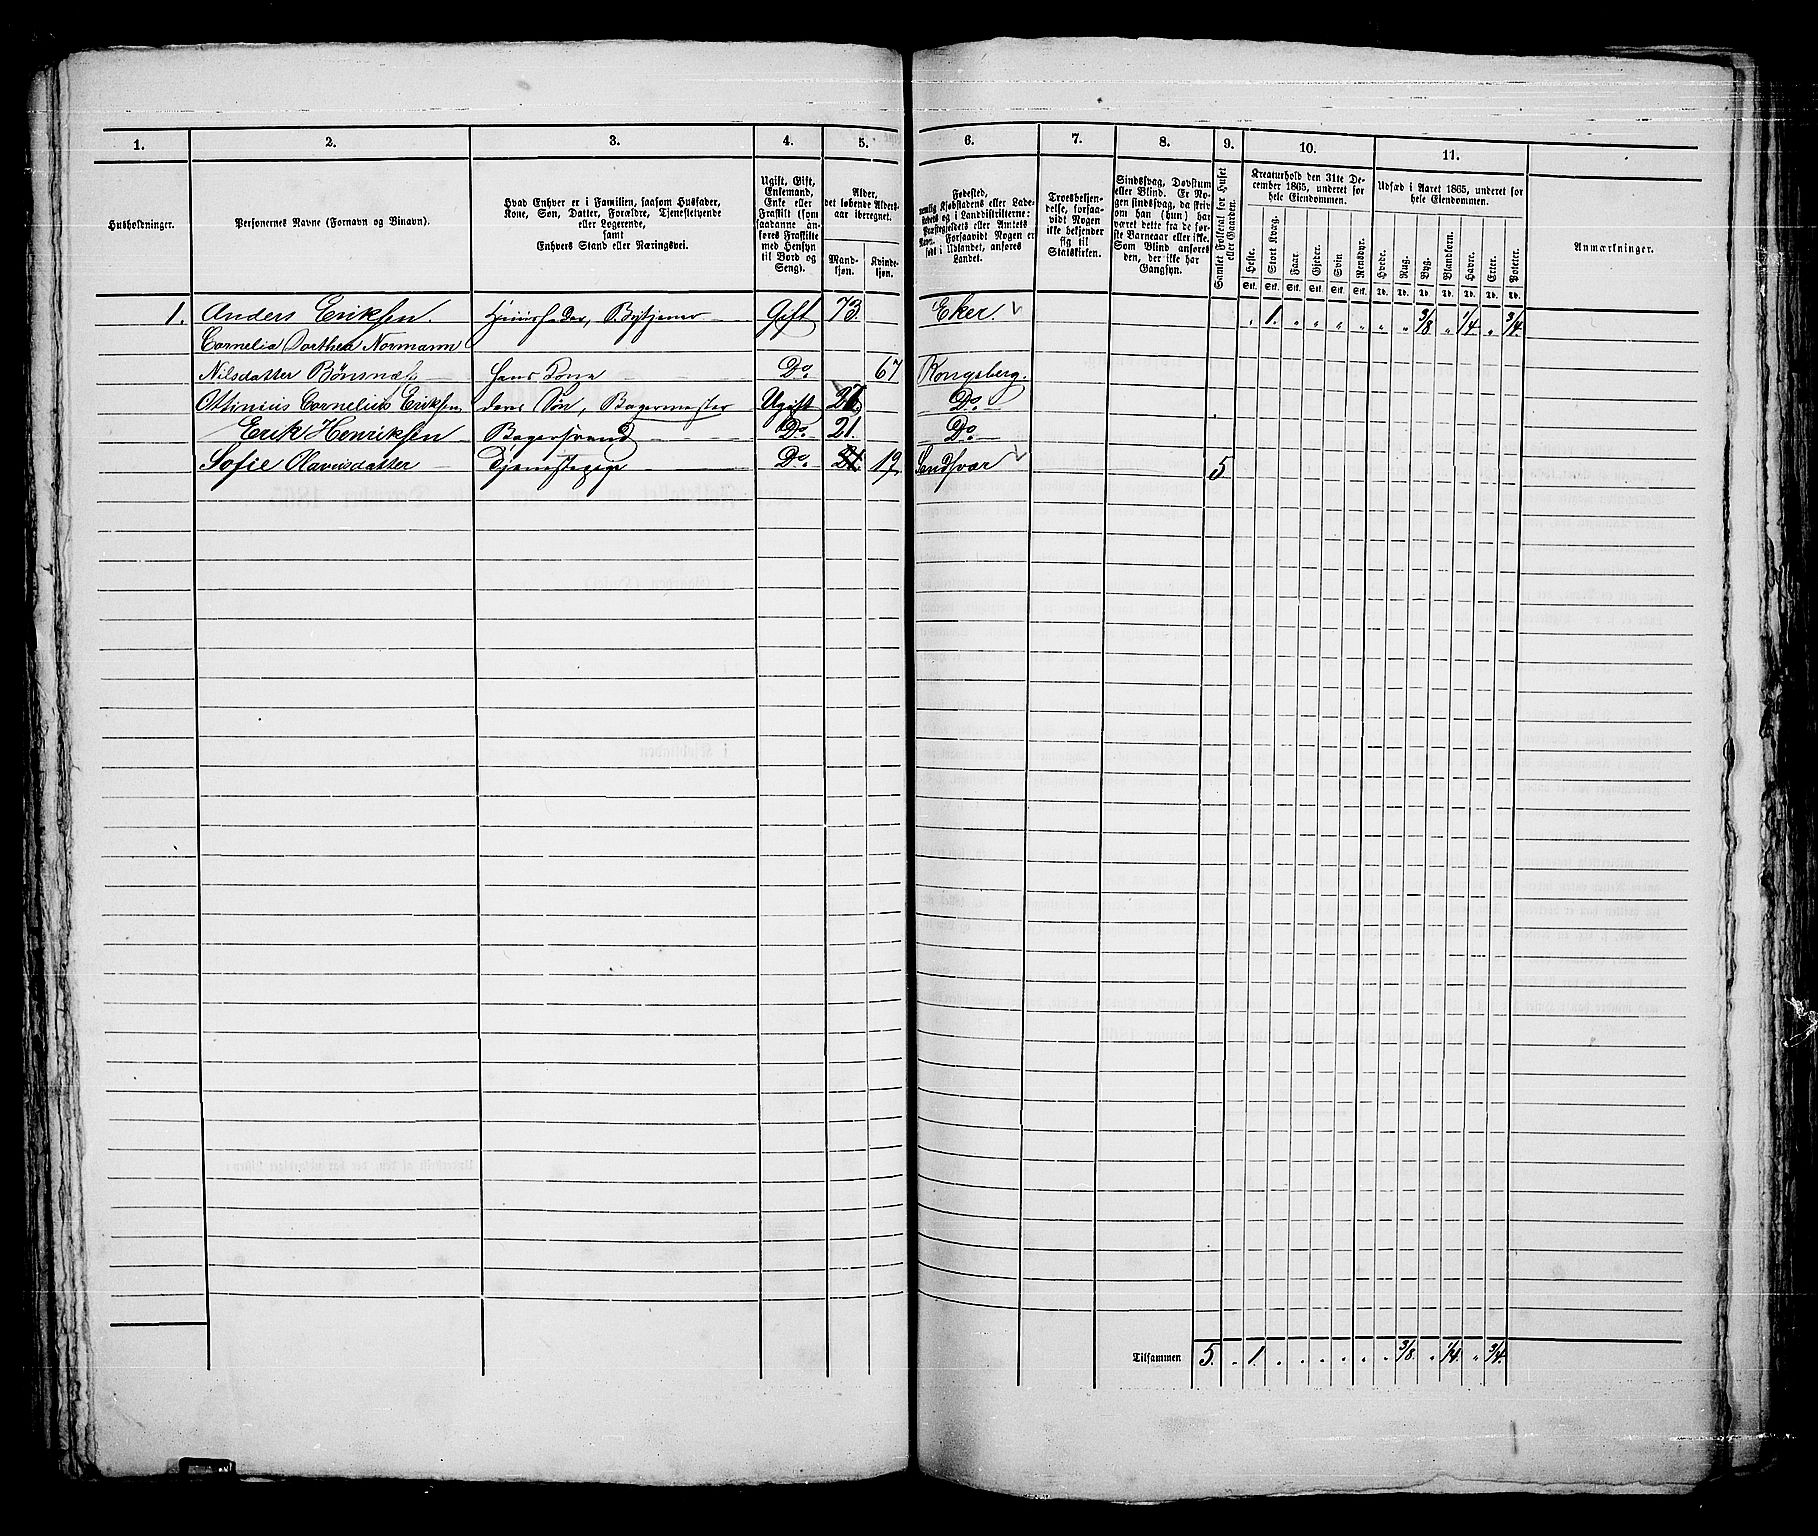 1. 2. 3. 4. 5. 6. 7. 8. 9. 10. 11.
Husholdninger.
Personernes Navne (Fornavn og Binavn).
Hvad Enhver er i Familien, saasom Husfader,
Kone, Søn, Datter, Forældre, Tjenestetyende
eller Logerende,
samt
Enhvers Stand eller Næringsvei.
Ugift, Gift,
Enkemand,
Enke eller
Fraskilt (som
saadanne an-
føres Fraskilte
med Hensyn
til Bord og
Seng).
Alder,
det løbende Alders-
aar iberegnet.
Mand-
kjøn.
Kvinde-
kjøn.
Fødested,
nemlig Kjøbstadens eller Lade-
stedets og i Landdistrikterne:
Præstegjeldets eller Amtets
Navn. Forsaavidt Nogen er
født i Udlandet, anføres
Landet.
Troesbekjen-
delse, forsaa-
vidt Nogen
ikke bekjender
sig til
Statskirken.
Sindssvag, Døvstum
eller Blind. Er No-
gen sindssvag, da skriv
om han (hun) har
været dette fra de før-
ste Barneaar eller ikke.
Som Blind anføres
den, der ikke har
Gangsyn.
Samlet Folketal for Huset
eller Gaarden.
Kreaturhold den 31te De-
cember 1865, underet for
hele Eiendommen.
Heste. Stort Kvæg. Faar. Gjeder. Svin. Rensdyr.
Stk. Stk. Stk. Stk. Stk. Stk.
Udsæd i Aaret 1865, underet for
hele Eiendommen.
Hvede. Rug. Byg. Blandkorn. Havre. Erter. Poteter.
Td. Td. Td. Td. Td. Td. Td.
Anmærkninger.
1. Anders Eriksen. Huusfader, Bytjener Gift 73. Eker. „ 1. „ „ „ „ „ „ 3/8 „ 1/4 „ 3/4.
Cornelia Dorthea Normann
Nilsdatter Bønsnæs hans Kone Do. 67 Kongsberg.
Ottinius Cornelius Eriksen deres Søn, Bagermester Ugift Do.
Erik Henriksen Bagersvend Do. 21. Do.
Sofie Olavusdatter Tjenestepige Do. 21. 19. Sandsvær 5
Tilsammen 5. „ 1. „ „ „ „ „ „ 3/8. „ 1/4. „ 3/4.